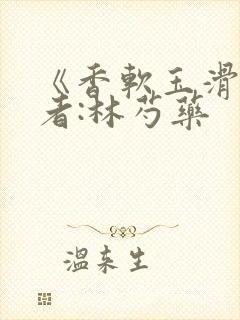 《香軟玉滑
者:林芍藥
溫來生